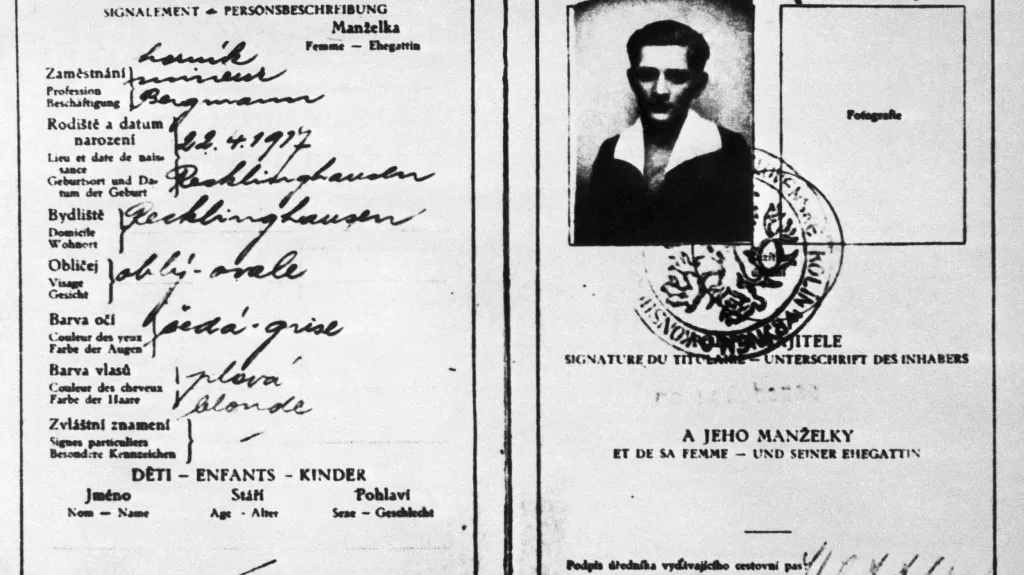 SIGNALEMENT - PERSONSBESCHREIBUNG
Manželka
Femme — Ehegattin
horník
Zaměstnání
mineur
Profession
Beschäftigung
Bergmann
Rodiště a datum
narození
22.4.1917
Lieu et date de nais-
sance
Geburtsort und Da-
tum der Geburt
Recklinghausen
Bydliště
Domicile
Wohnort
Recklinghausen
Obličej
Visage
Gesicht
oblý-ovale
Barva očí
Couleur des yeux
Farbe der Augen
šedá-grise
Barva vlasů
Couleur des cheveux
Farbe der Haare
plavá
blonde
Zvláštní znamení
Signes particuliers
Besondere Kennzeichen
—
DĚTI — ENFANTS - KINDER
Jméno Stáří Pohlaví
Nom — Name Age - Alter Sexe — Geschlecht
Fotografie
KOLÍN
JITELE
SIGNATURE DU TITULAIRE — UNTERSCHRIFT DES INHABERS
A JEHO MANŽELKY
ET DE SA FEMME — UND SEINER EHEGATTIN
Podpis úředníka vydávajícího cestovní pas